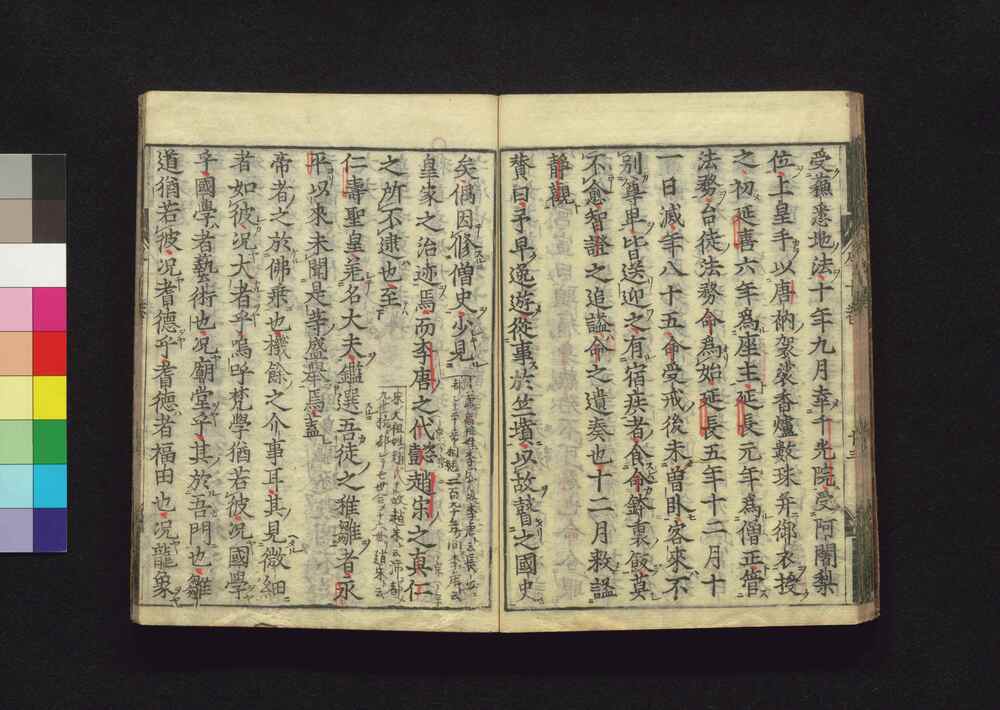 受蘇悉地法十年九月幸千光院受阿闍梨
位上皇手以唐衲袈裟香爐數珠并御衣授
之初延喜六年為座主延長元年為僧正管
法務台徒法務命為始延長五年十二月十
一日滅年八十五命受戒後未曾臥客來不
別尊卑皆送迎之有宿疾者食命鉢裏飯莫
不愈智證之追謚命之遺奏也十二月敕謚
靜觀
賛曰予早逸遊從事於竺墳以故瞽之國史
矣偶因修僧史少見
皇家之治迹焉而李唐之代懿趙宋之真仁
之所不逮也至
仁壽聖皇差名大夫鑑選吾徒之稚雛者永
平以來未聞是等盛舉焉蓋
帝者之於佛乘也機餘之介事耳其見微細
者如彼況大者乎嗚呼梵學猶若彼況國學
乎國學者藝術也況廟堂乎其於吾門也雛
道猶若彼況耆德乎耆德者福田也況龍象